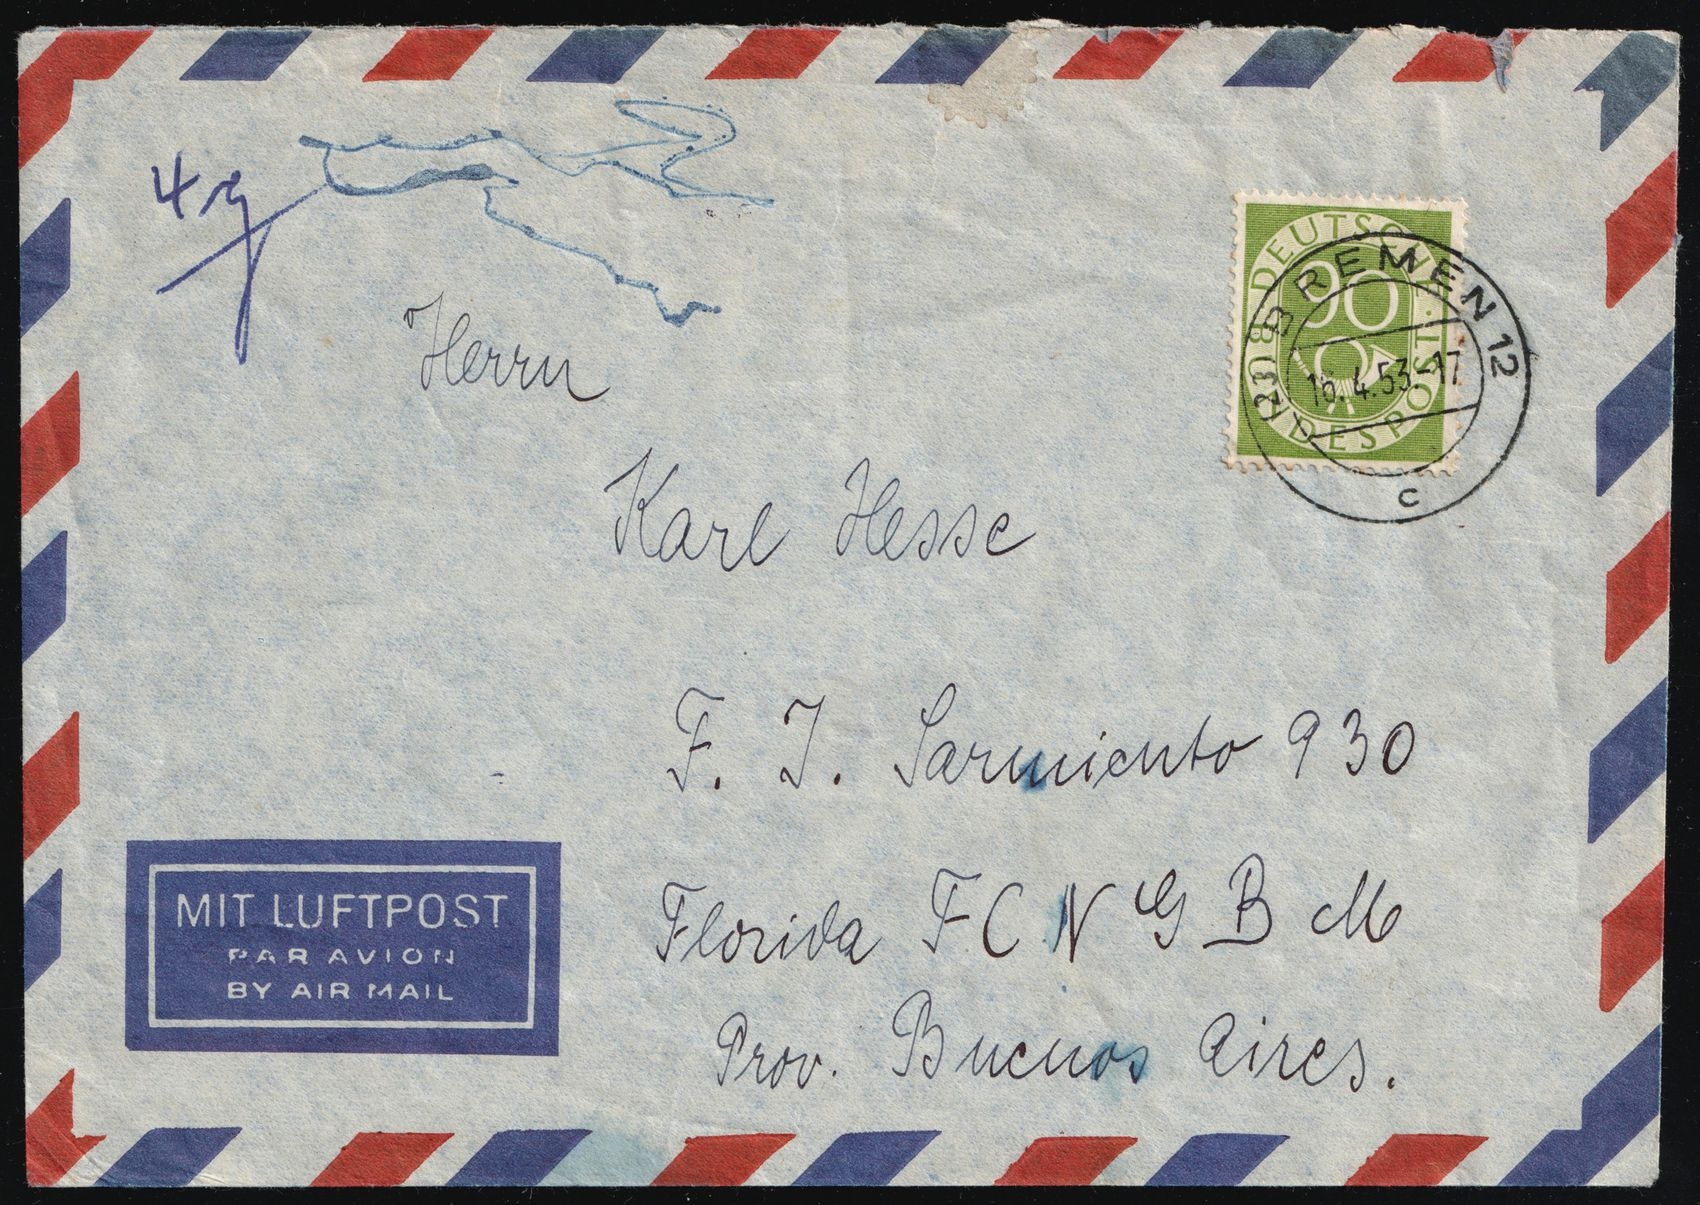 4 g
DEUTSCHE BUNDESPOST
90
(23) BREMEN 12
16.4.53.-17
c
Herrn
Karl Hesse
F. J. Sarmiento 930
Florida F C N G B M
Prov. Buenos Aires.
MIT LUFTPOST
PAR AVION
BY AIR MAIL